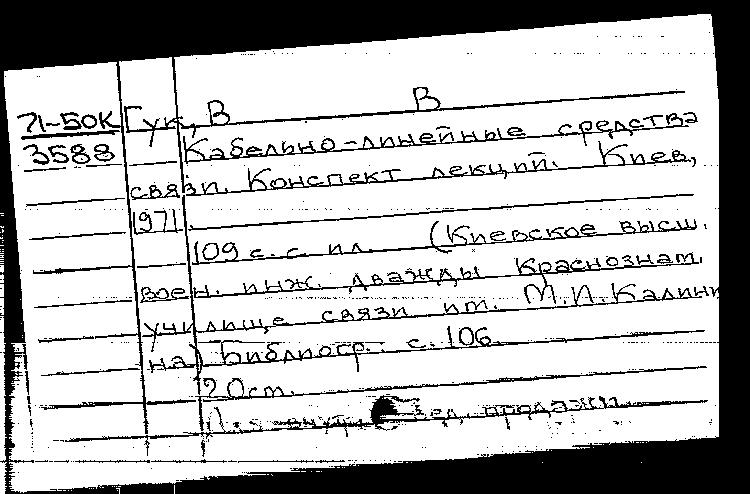 71-50К Гук, В В
3588 Кабельно-линейные средства
связи. Конспект лекций. Киев,
1971.
109 с. с ил. (Киевское высш.
воен. инж. дважды Краснознам.
училище связи им. М.И.Калини
на) Библиогр.: с. 106
20см.
Для внутр. вед. продажи